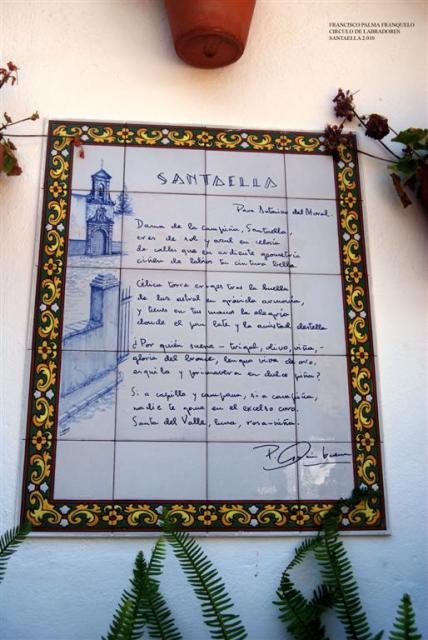 FRANCISCO PALMA FRANQUELO
CIRCULO DE LABRADORES
SANTAELLA 2.010
SANTAELLA
Para Antonino del Moral
Dama de la campiña, Santaella,
eres de sol y azul en celosía
de calles que en ardiente geometría
ciñen de labios tu cintura bella.
Célica torre tras la huella
de luz astral en armonía,
y tienes en tus manos la alegría
donde el pan late y la amistad destella
¿Por quién suena - trigal, olivo, viña, -
gloria del bronce, lengua viva de oro,
esquila y primavera en dulce piña?
Si a capilla y campana, si a campiña,
nadie te gana en el excelso coro.
Santa del Valle, luna, rosa-niña.